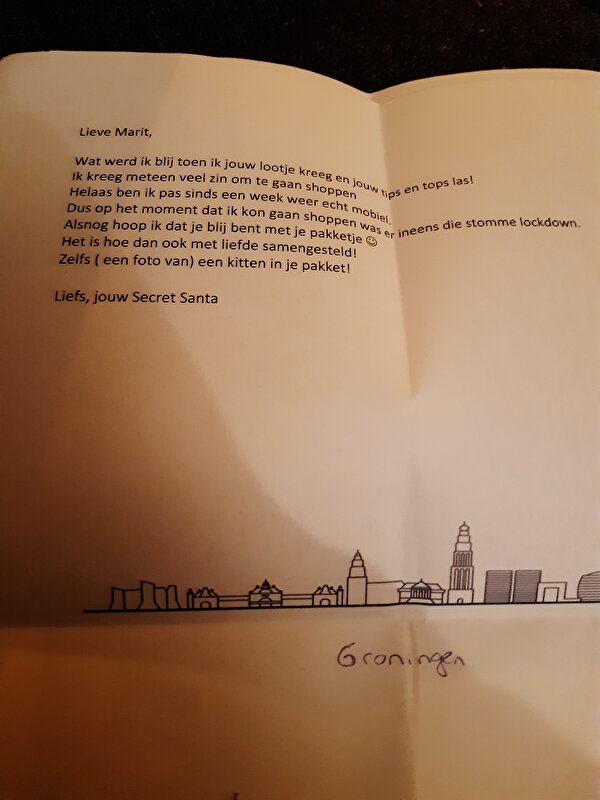 Lieve Marit,
Wat werd ik blij toen ik jouw lootje kreeg en jouw tips en tops las!
Ik kreeg meteen veel zin om te gaan shoppen
Helaas ben ik pas sinds een week weer echt mobiel.
Dus op het moment dat ik kon gaan shoppen was er ineens die stomme lockdown.
Alsnog hoop ik dat je blij bent met je pakketje ☺
Het is hoe dan ook met liefde samengesteld!
Zelfs ( een foto van) een kitten in je pakket!
Liefs, jouw Secret Santa
Groningen